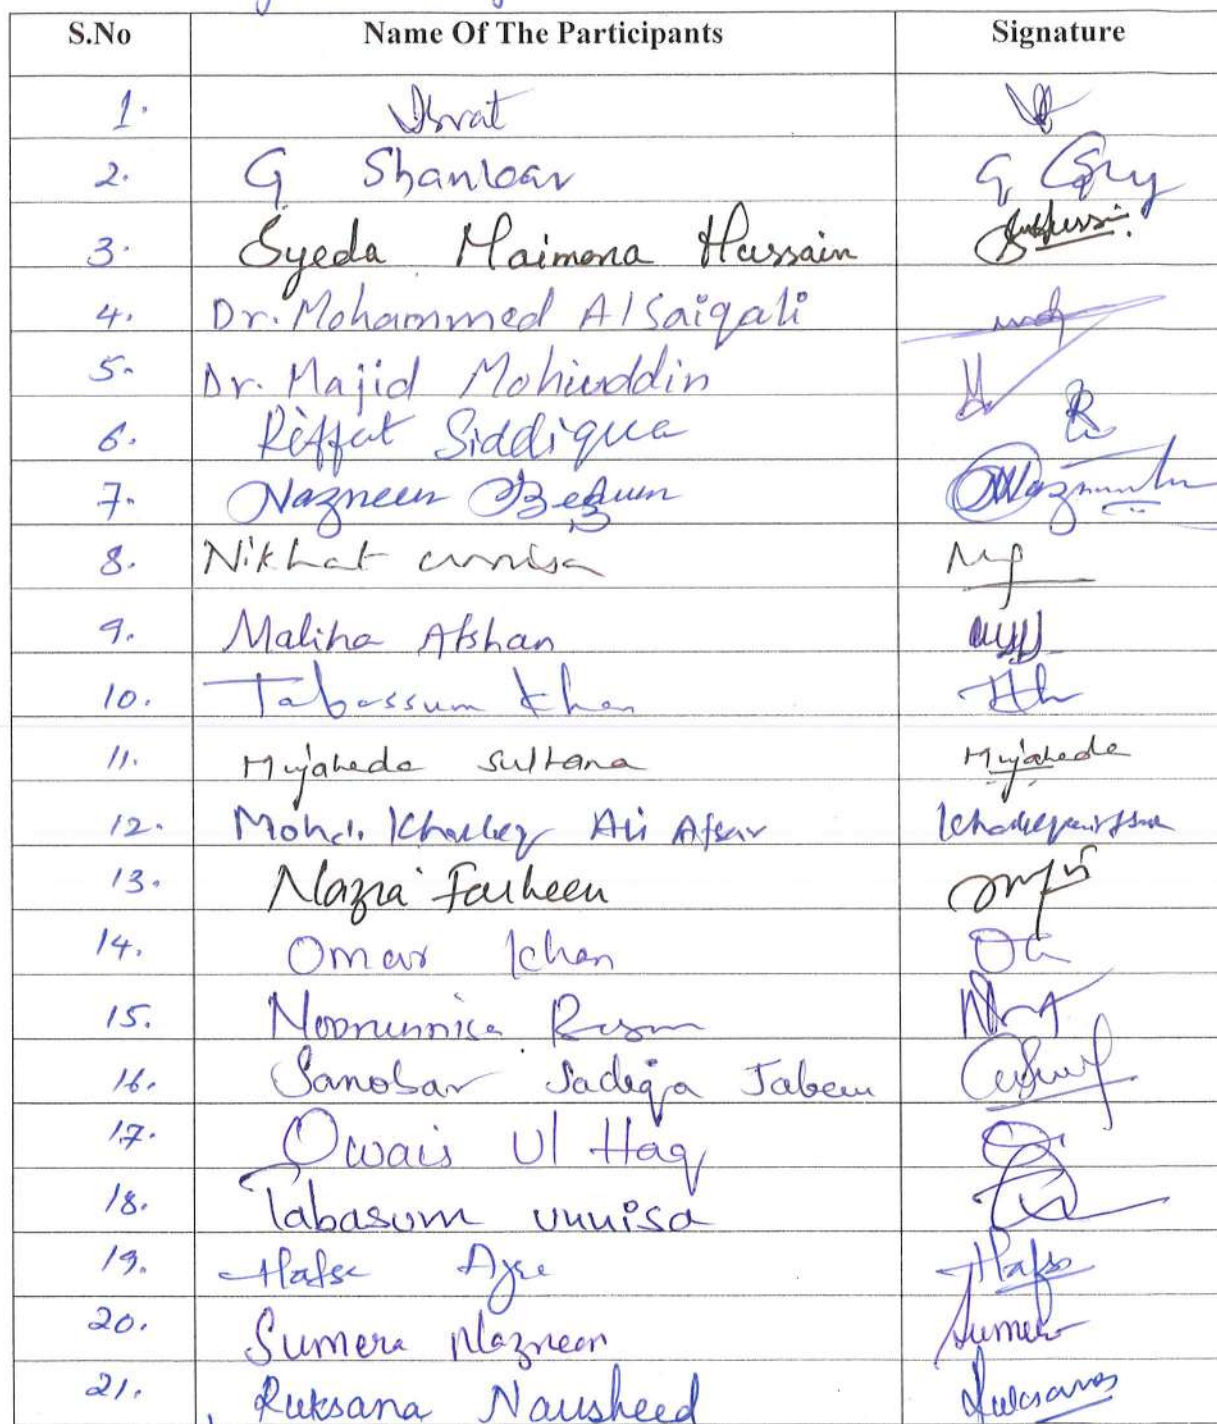 S.No Name Of The Participants Signature
1. Israt
2. G Shankar G
3. Syeda Maimona Hussain
4. Dr. Mohammed AlSaiqali
5. Dr. Majid Mohiuddin
6. Riffat Siddiqua R
7. Nazneen Begum
8. Nikhat unnisa
9. Maliha Afshan
10. Tabassum Khan
11. Mujaheda Sultana Mujaheda
12. Mohd. Khaleeq Ali Afsar
13. Nazia Farheen
14. Omar Khan
15. Noorunnisa
16. Sanobar Sadiqa Jabeen
17. Owais Ul Haq
18. Tabasum unnisa
19. Hafsa Hafsa
20. Sumera Nazneen Sumera
21. Ruksana Nausheed Ruksana